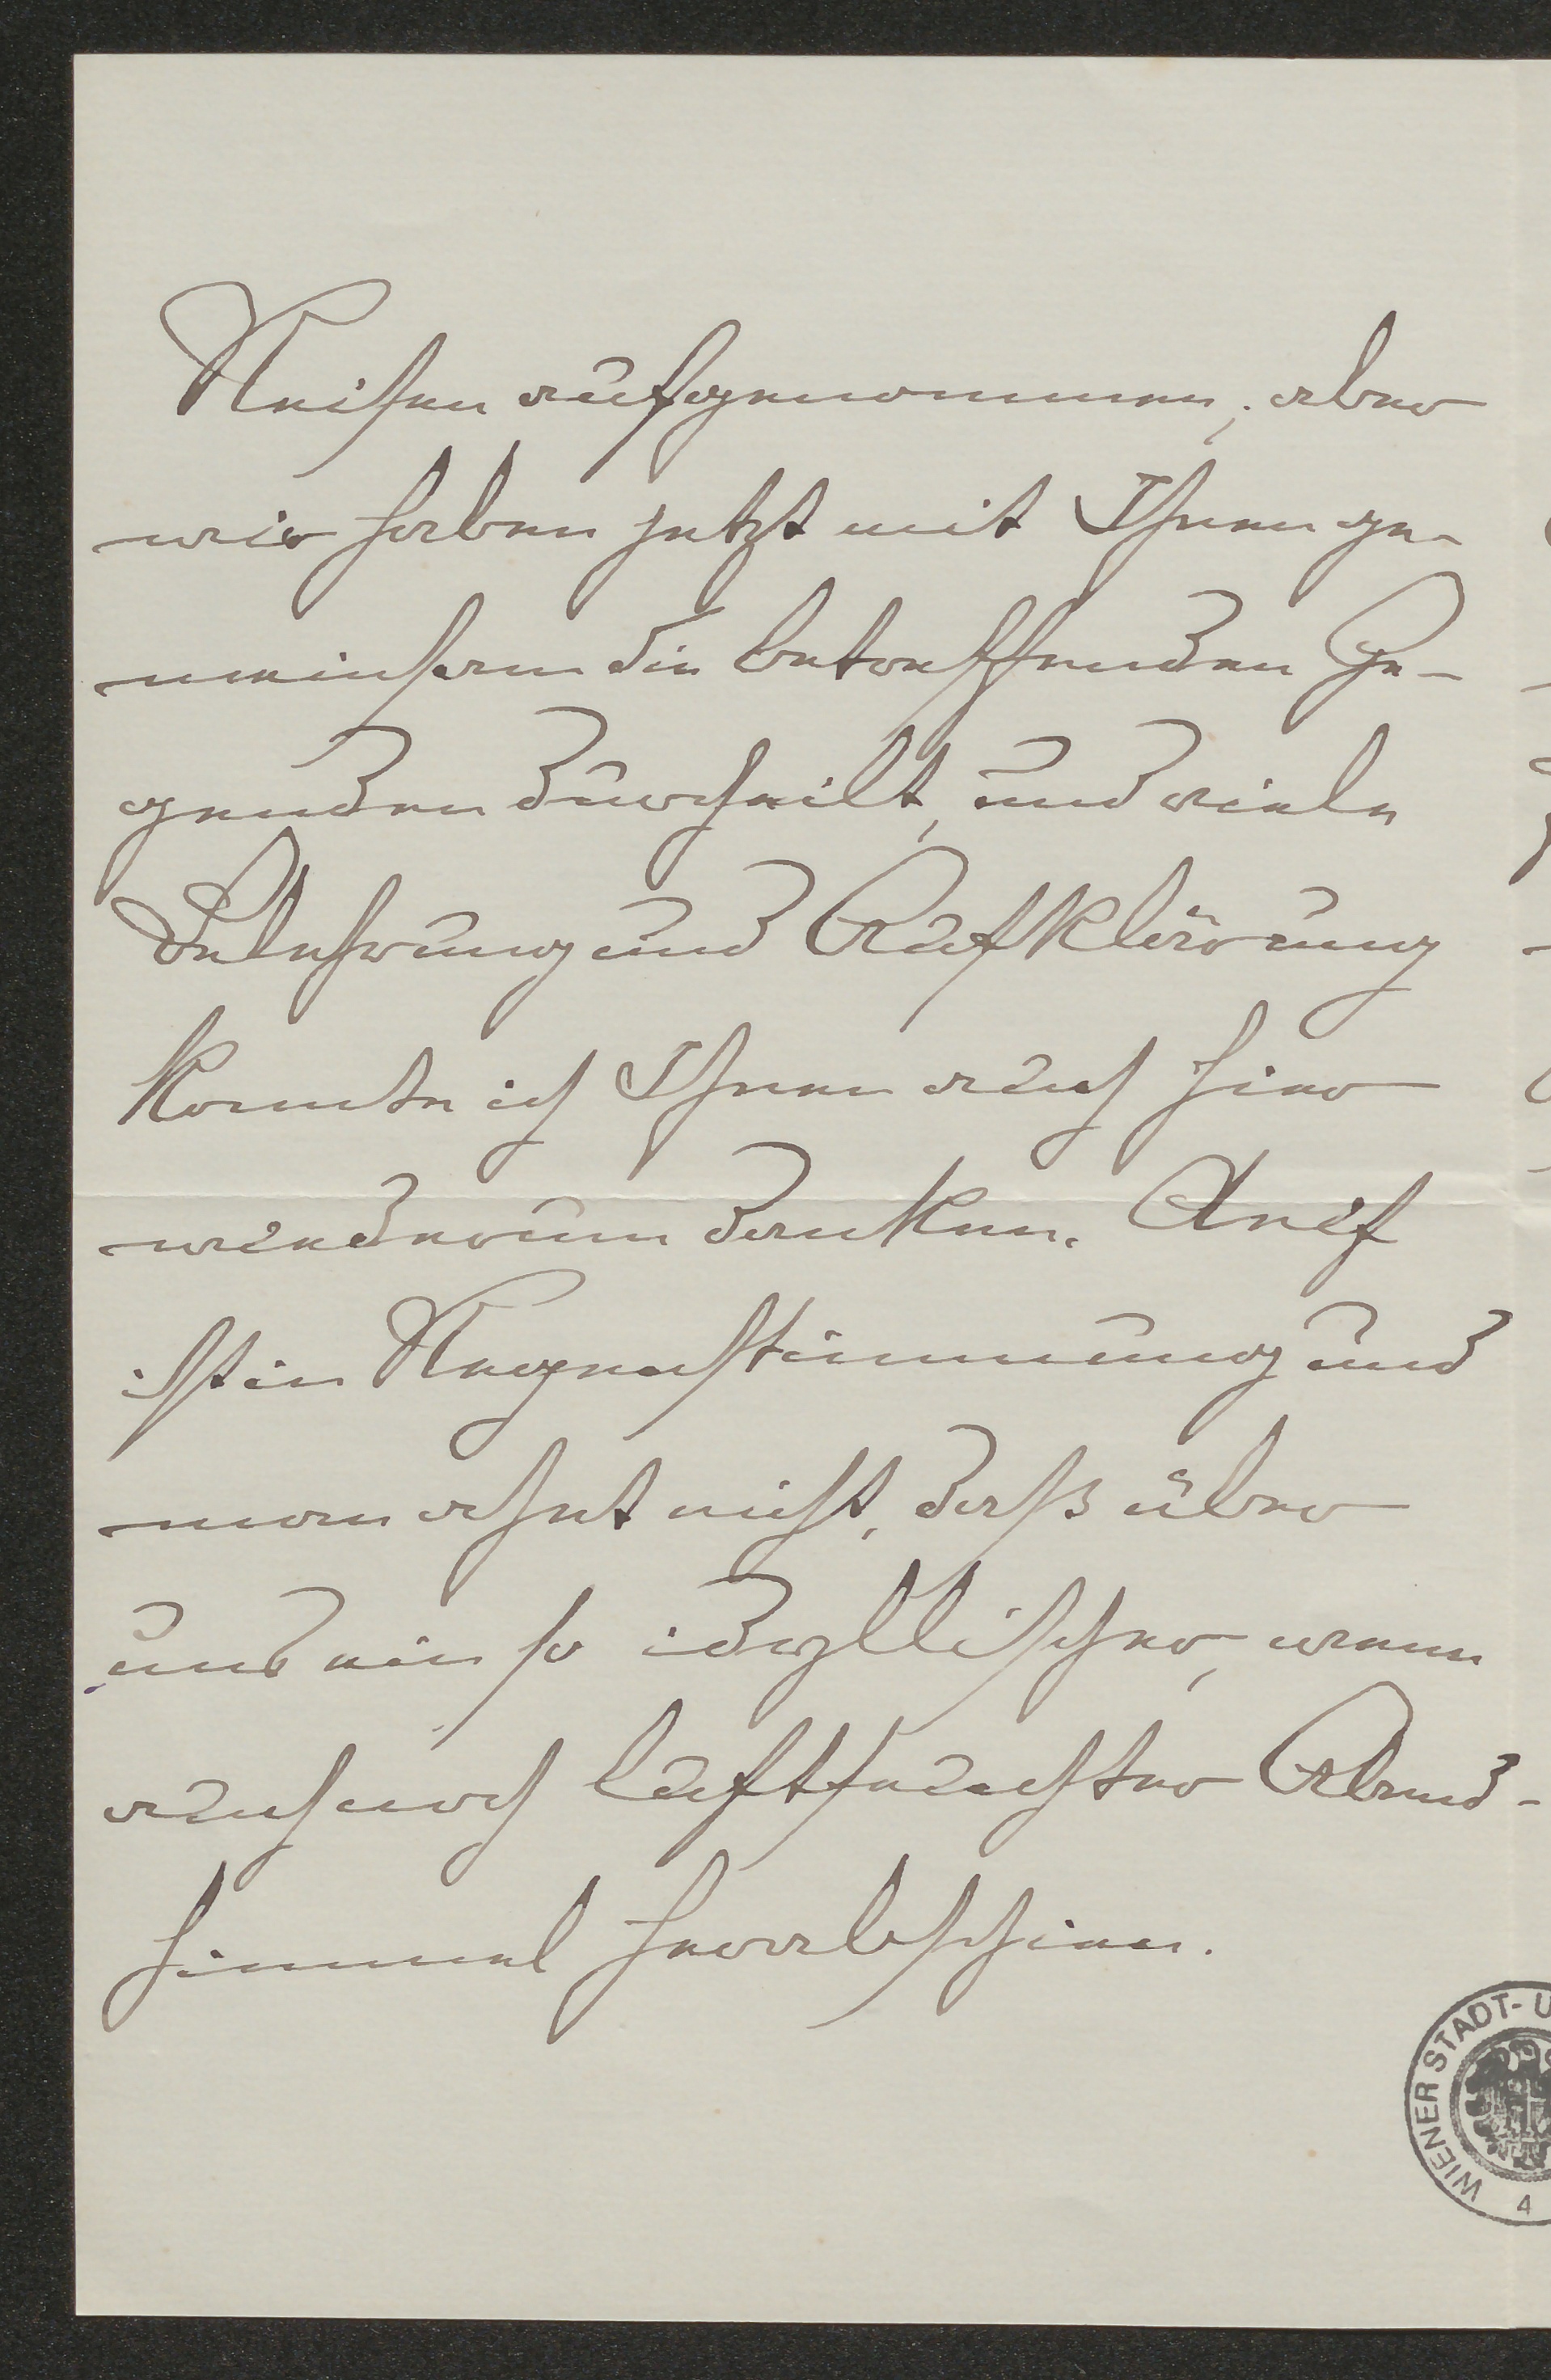 Reisen aufgenommen; aber
wir haben jetzt mit Ihnen ge-
meinsam die betreffenden Ge-
genden durcheilt, und viele
Belehrung und Aufklärung
konnte ich Ihnen auch hier
wiederum danken. Anif
ist in Regenstimmung und
man ahnt nicht, daß über
uns ein so idyllischer, wenn
auch noch luftfeuchter Abend-
himmel herabschien.
WIENER STADT- U
4